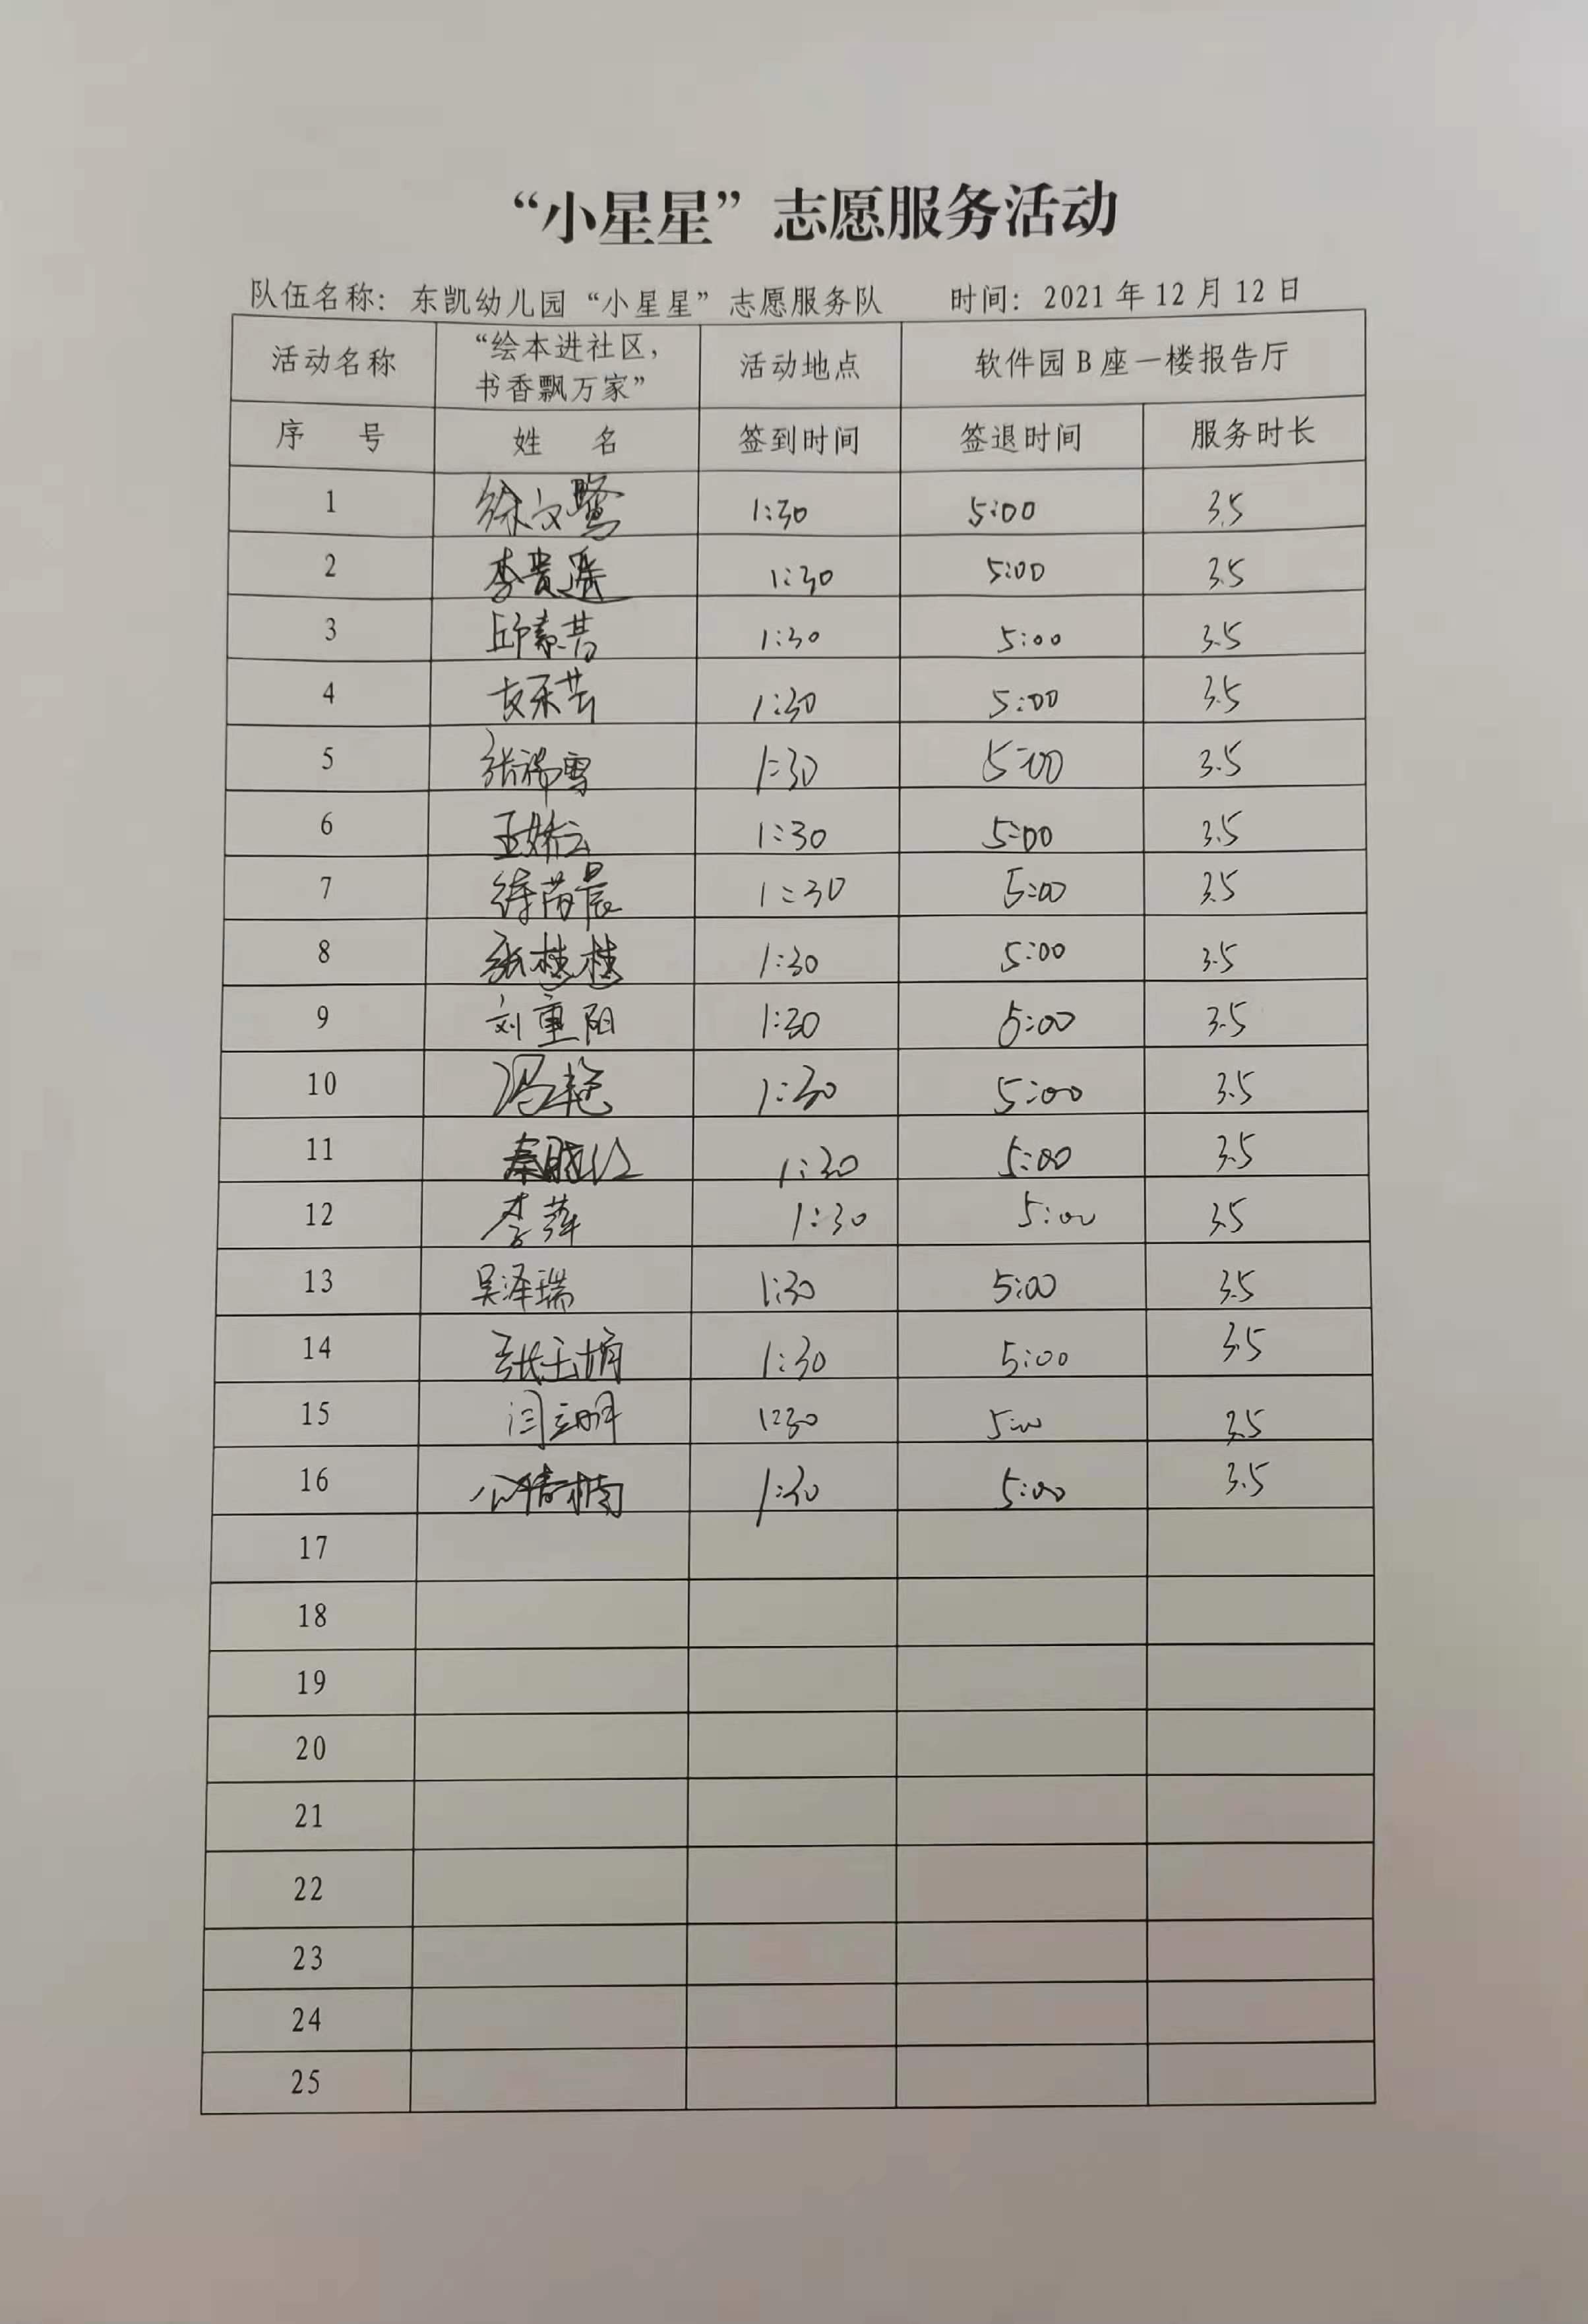 “小星星”志愿服务活动
队伍名称：东凯幼儿园“小星星”志愿服务队 时间：2021年12月12日
活动名称 “绘本进社区，书香飘万家” 活动地点 软件园B座一楼报告厅
序 号 姓 名 签到时间 签退时间 服务时长
1 徐文鹭 1:30 5:00 3.5
2 李贵遥 1:30 5:00 3.5
3 邱素芸 1:30 5:00 3.5
4 1:30 5:00 3.5
5 张瑞雪 1:30 5:00 3.5
6 王娇云 1:30 5:00 3.5
7 1:30 5:00 3.5
8 张桂桂 1:30 5:00 3.5
9 刘重阳 1:30 5:00 3.5
10 冯艳 1:30 5:00 3.5
11 秦晓红 1:30 5:00 3.5
12 李萍 1:30 5:00 3.5
13 吴泽瑞 1:30 5:00 3.5
14 张玉楠 1:30 5:00 3.5
15 闫明 1:30 5:00 3.5
16 公倩楠 1:30 5:00 3.5
17
18
19
20
21
22
23
24
25